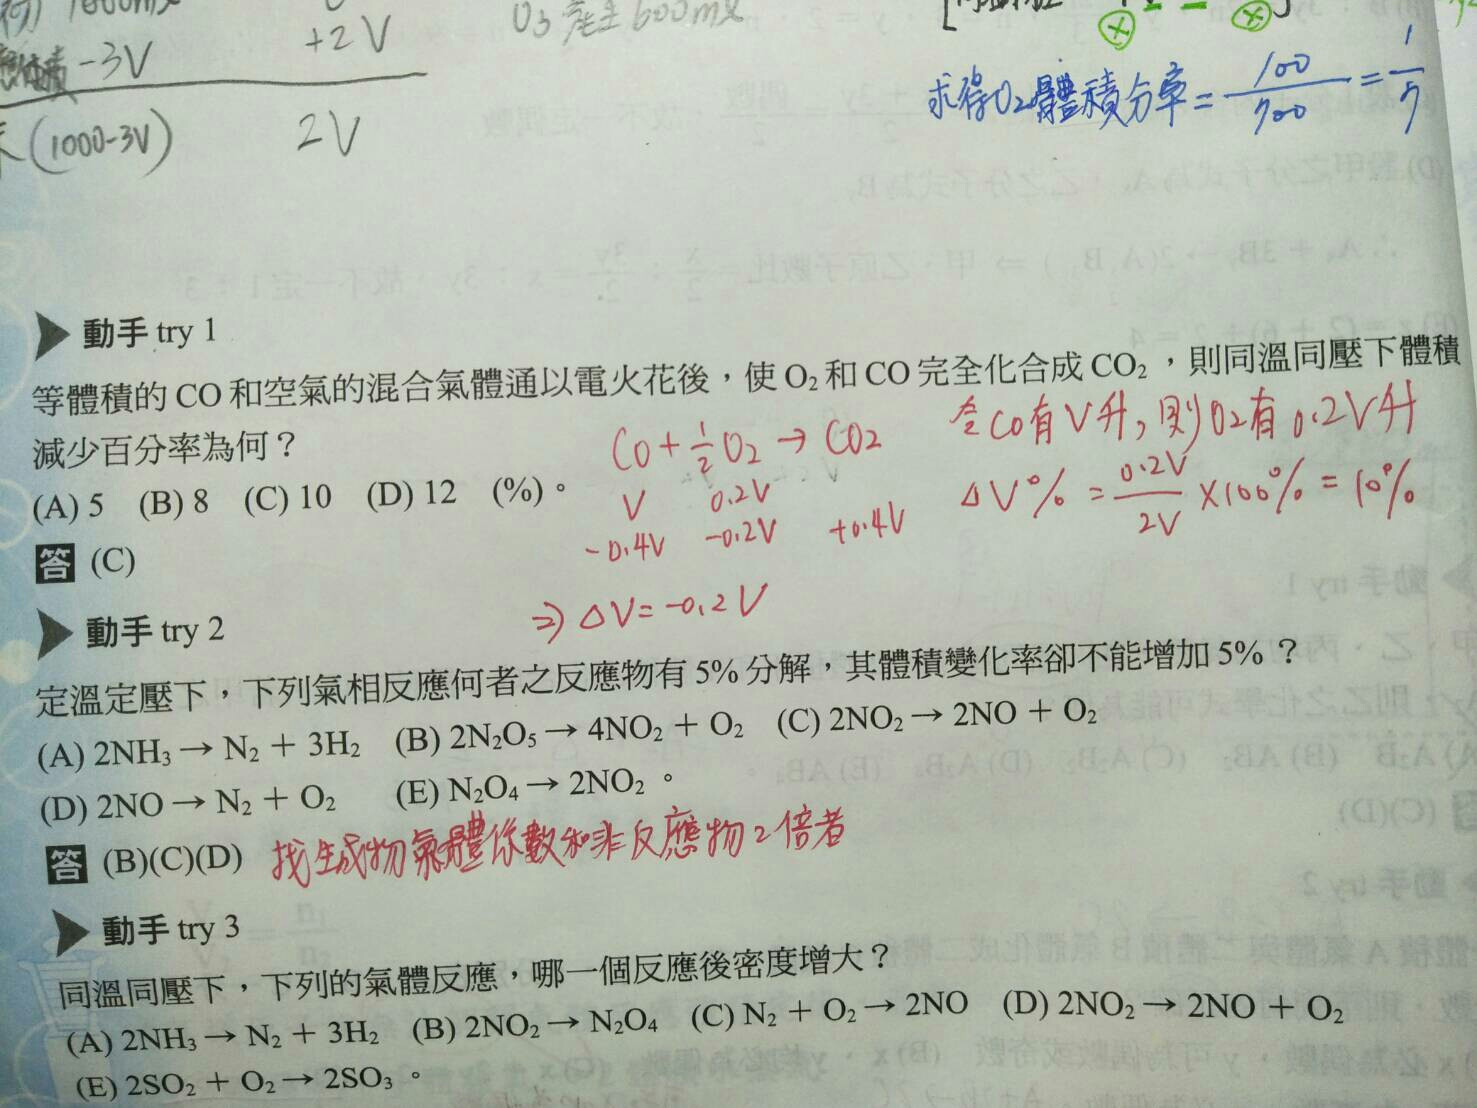 1000ml
-3V +2V
(1000-3V) 2V
O3產生600ml
求得O2體積分率 = 100/500 = 1/5
動手 try 1
等體積的 CO 和空氣的混合氣體通以電火花後，使 O₂ 和 CO 完全化合成 CO₂，則同溫同壓下體積
減少百分率為何？
(A) 5 (B) 8 (C) 10 (D) 12 (%)。
答 (C)
CO + 1/2 O2 → CO2
V 0.2V
-0.4V -0.2V +0.4V
⇒ ΔV = -0.2V
令CO有V升，則O2有0.2V升
ΔV% = 0.2V/2V ×100% = 10%
動手 try 2
定溫定壓下，下列氣相反應何者之反應物有 5% 分解，其體積變化率卻不能增加 5%？
(A) 2NH₃ → N₂ + 3H₂ (B) 2N₂O₅ → 4NO₂ + O₂ (C) 2NO₂ → 2NO + O₂
(D) 2NO → N₂ + O₂ (E) N₂O₄ → 2NO₂。
答 (B)(C)(D) 找生成物氣體係數和非反應物2倍者
動手 try 3
同溫同壓下，下列的氣體反應，哪一個反應後密度增大？
(A) 2NH₃ → N₂ + 3H₂ (B) 2NO₂ → N₂O₄ (C) N₂ + O₂ → 2NO (D) 2NO₂ → 2NO + O₂
(E) 2SO₂ + O₂ → 2SO₃。